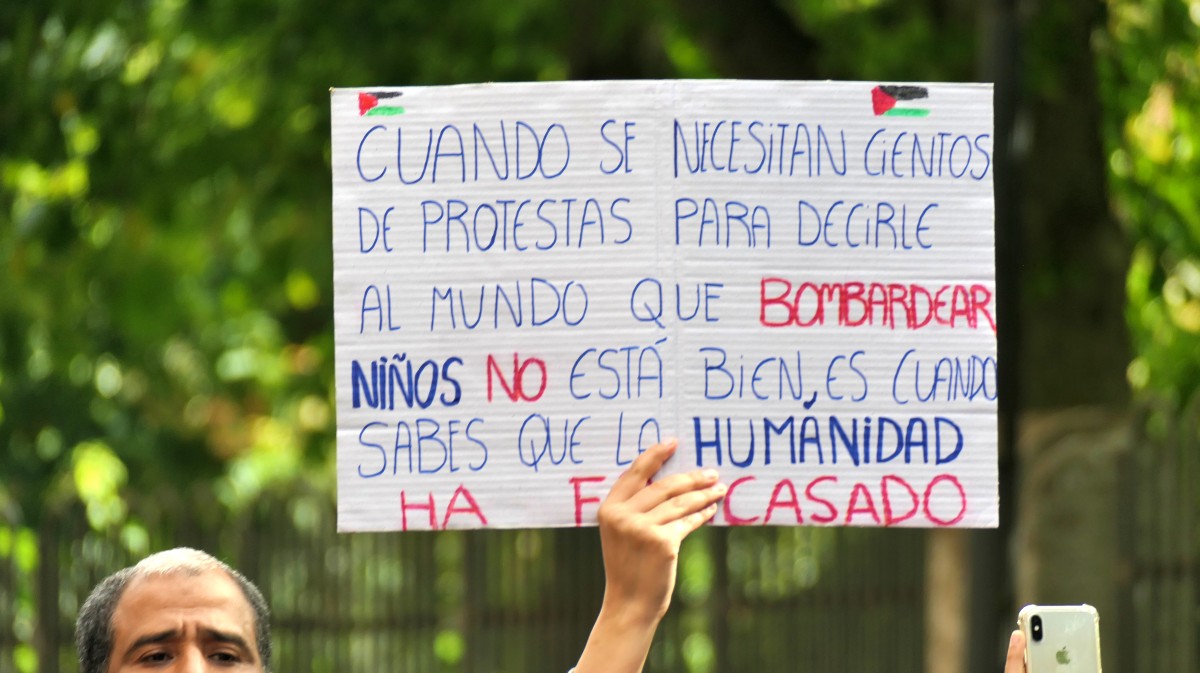 CUANDO SE NECESITAN CIENTOS
DE PROTESTAS PARA DECIRLE
AL MUNDO QUE BOMBARDEAR
NIÑOS NO ESTÁ BIEN, ES CUANDO
SABES QUE LA HUMÁNIDAD
HA FRACASADO